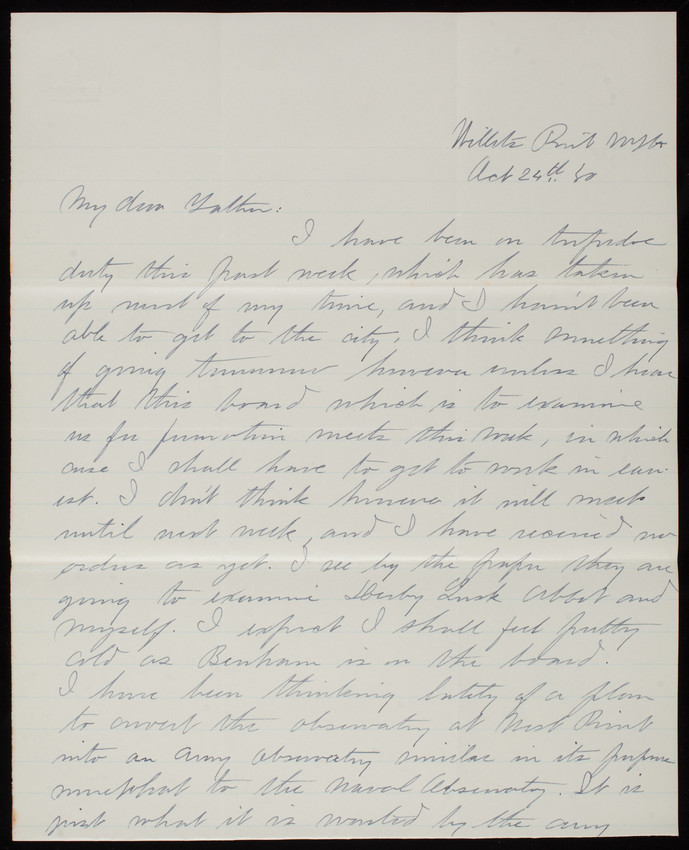 Willets Point NYHr
Oct 24th '80
My dear Father:
I have been on torpedo
duty this past week, which has taken
up most of my time, and I havn't been
able to get to the city. I think something
of going tomorrow however unless I hear
that this board which is to examine
us for promotion meets this week, in which
case I shall have to get to work in earn-
est. I don't think however it will meet
until next week, and I have received no
orders as yet. I see by the paper they are
going to examine Derby Lusk Abbot and
myself. I expect I shall feel pretty
cold as Benham is on the board.
I have been thinking lately of a plan
to convert the observatory at West Point
into an army observatory similar in its purpose
somewhat to the Naval Observatory. It is
just what it is wanted by the army